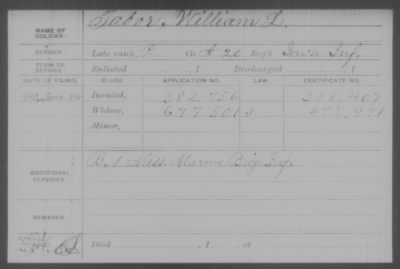 NAME OF SOLDIER: Tabor, William L.
SERVICE: Late rank, P Co. H, 20 Reg't Iowa Inf.
TERM OF SERVICE: Enlisted , 1 Discharged , 1
DATE OF FILING. CLASS. APPLICATION NO. LAW. CERTIFICATE NO.
Invalid, 382,756 407
Widow, 677,501 477,471
Minor,
ADDITIONAL SERVICES: D. 1 Miss. Marine Brig. Inf.
REMARKS:
Died , 1 , at